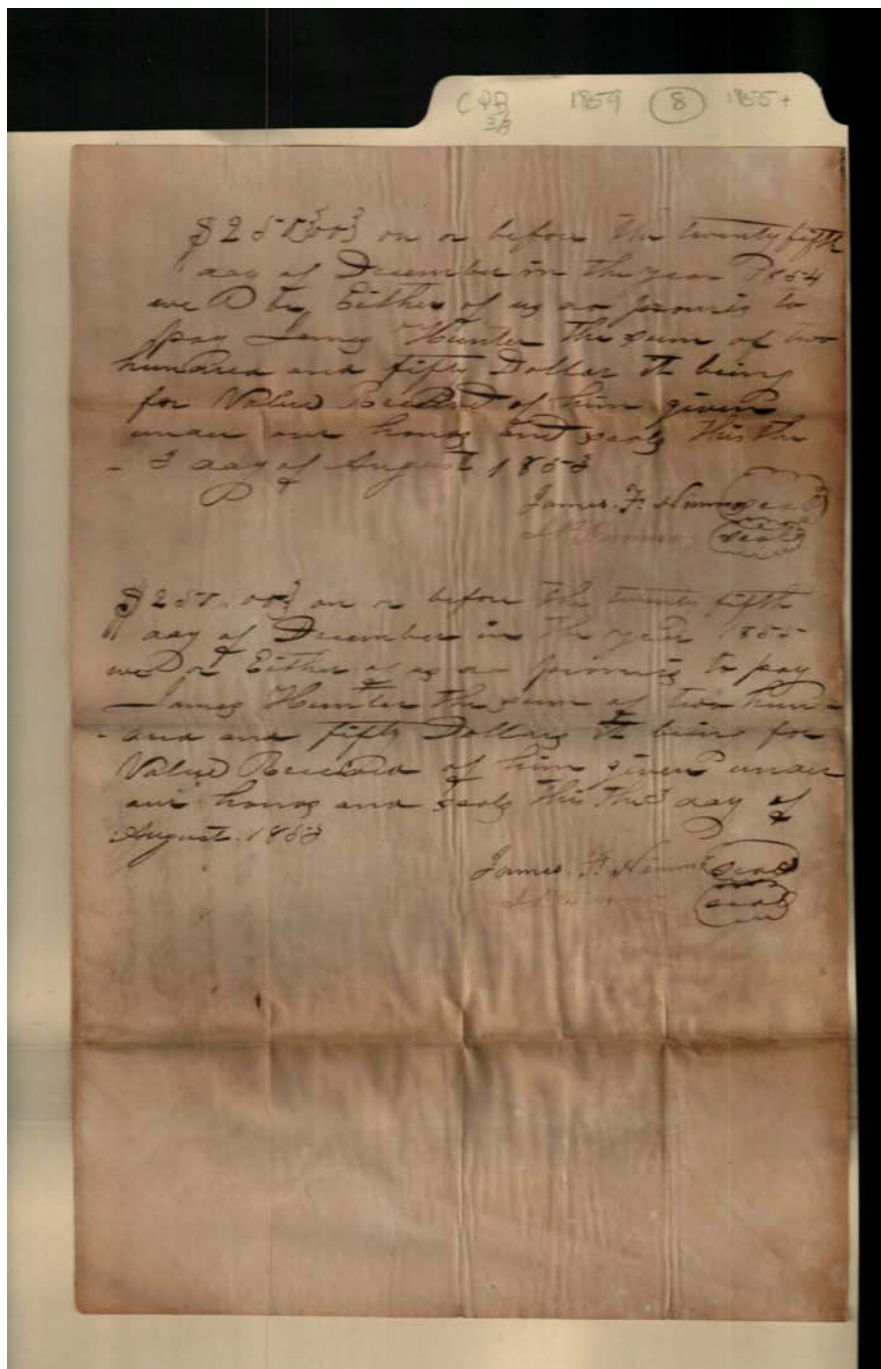 CPB 1859 8 1855+
$250.00 on or before the twenty fifth
day of December in the year 1854
we or Either of us do promis to
pay James Hunter the sum of two
hundred and fifty Dollar it being
for Value Received of him given
under our hands and seals this the
3 day of August 1853
James. F. Nimmo seal
seal
$250.00 on or before the twenty fifth
day of December in the year 1855
we or Either of us do promis to pay
James Hunter the sum of two hun-
and fifty Dollars it being for
Value Received of him given under
our hands and seals this the 3 day of
August. 1853
James. F. Nimmo seal
seal